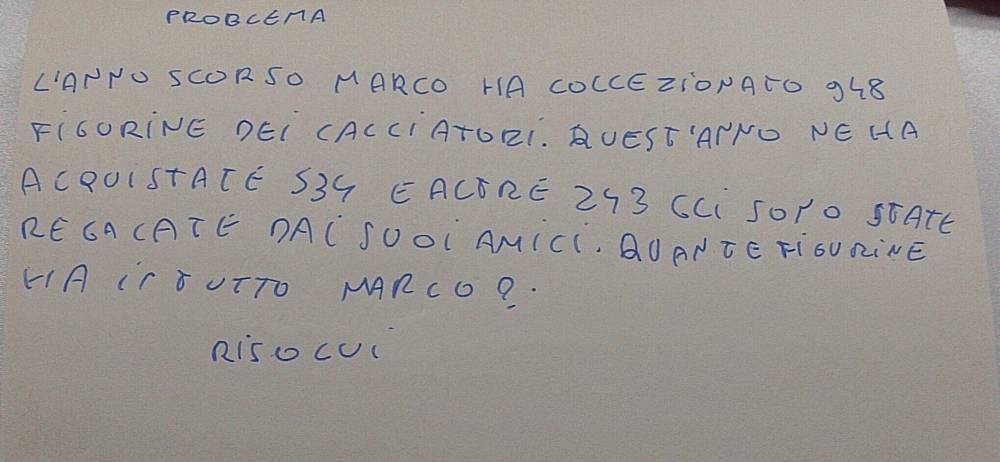 PROBLEMA
L'ANNO SCORSO MARCO HA COLLEZIONATO 948
FIGURINE DEI CACCIATORI. QUEST'ANNO NE HA
ACQUISTATE 534 E ALTRE 243 GLI SONO STATE
REGALATE DAI SUOI AMICI. QUANTE FIGURINE
HA IN TUTTO MARCO?.
RISOLVI